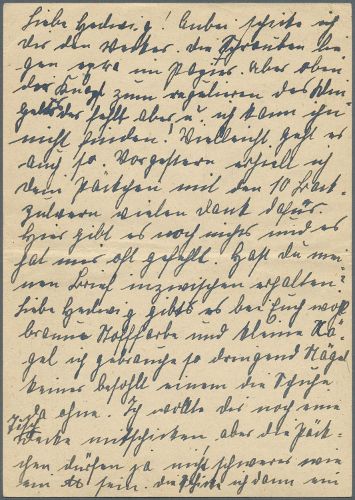 Liebe Hedwig! Anbei schicke ich
dir den Wecker. Die Schrauben lie-
gen extra im Papier. Aber oben
der Knopf zum regulieren des Klin-
gelns der fehlt aber u. ich kann ihn
nicht finden! Vielleicht geht es
auch so. Vorgestern erhielt ich
dein Päckchen mit den 10 Back-
pulvern vielen Dank dafür.
Hier gibt es noch nichts und es
hat mir oft gefehlt. Hast du mei-
nen Brief inzwischen erhalten?
Liebe Hedwig gibts es bei Euch wohl
braune Stoffarbe und kleine Nä-
gel ich gebrauche so dringend Nägel
keiner besohlt einem die Schuhe
da ohne. Ich wollte dir noch eine
Tisch
decke mitschicken aber die Päck-
chen dürfen ja nicht schwerer wie
ein sein. die schicke ich dann ein